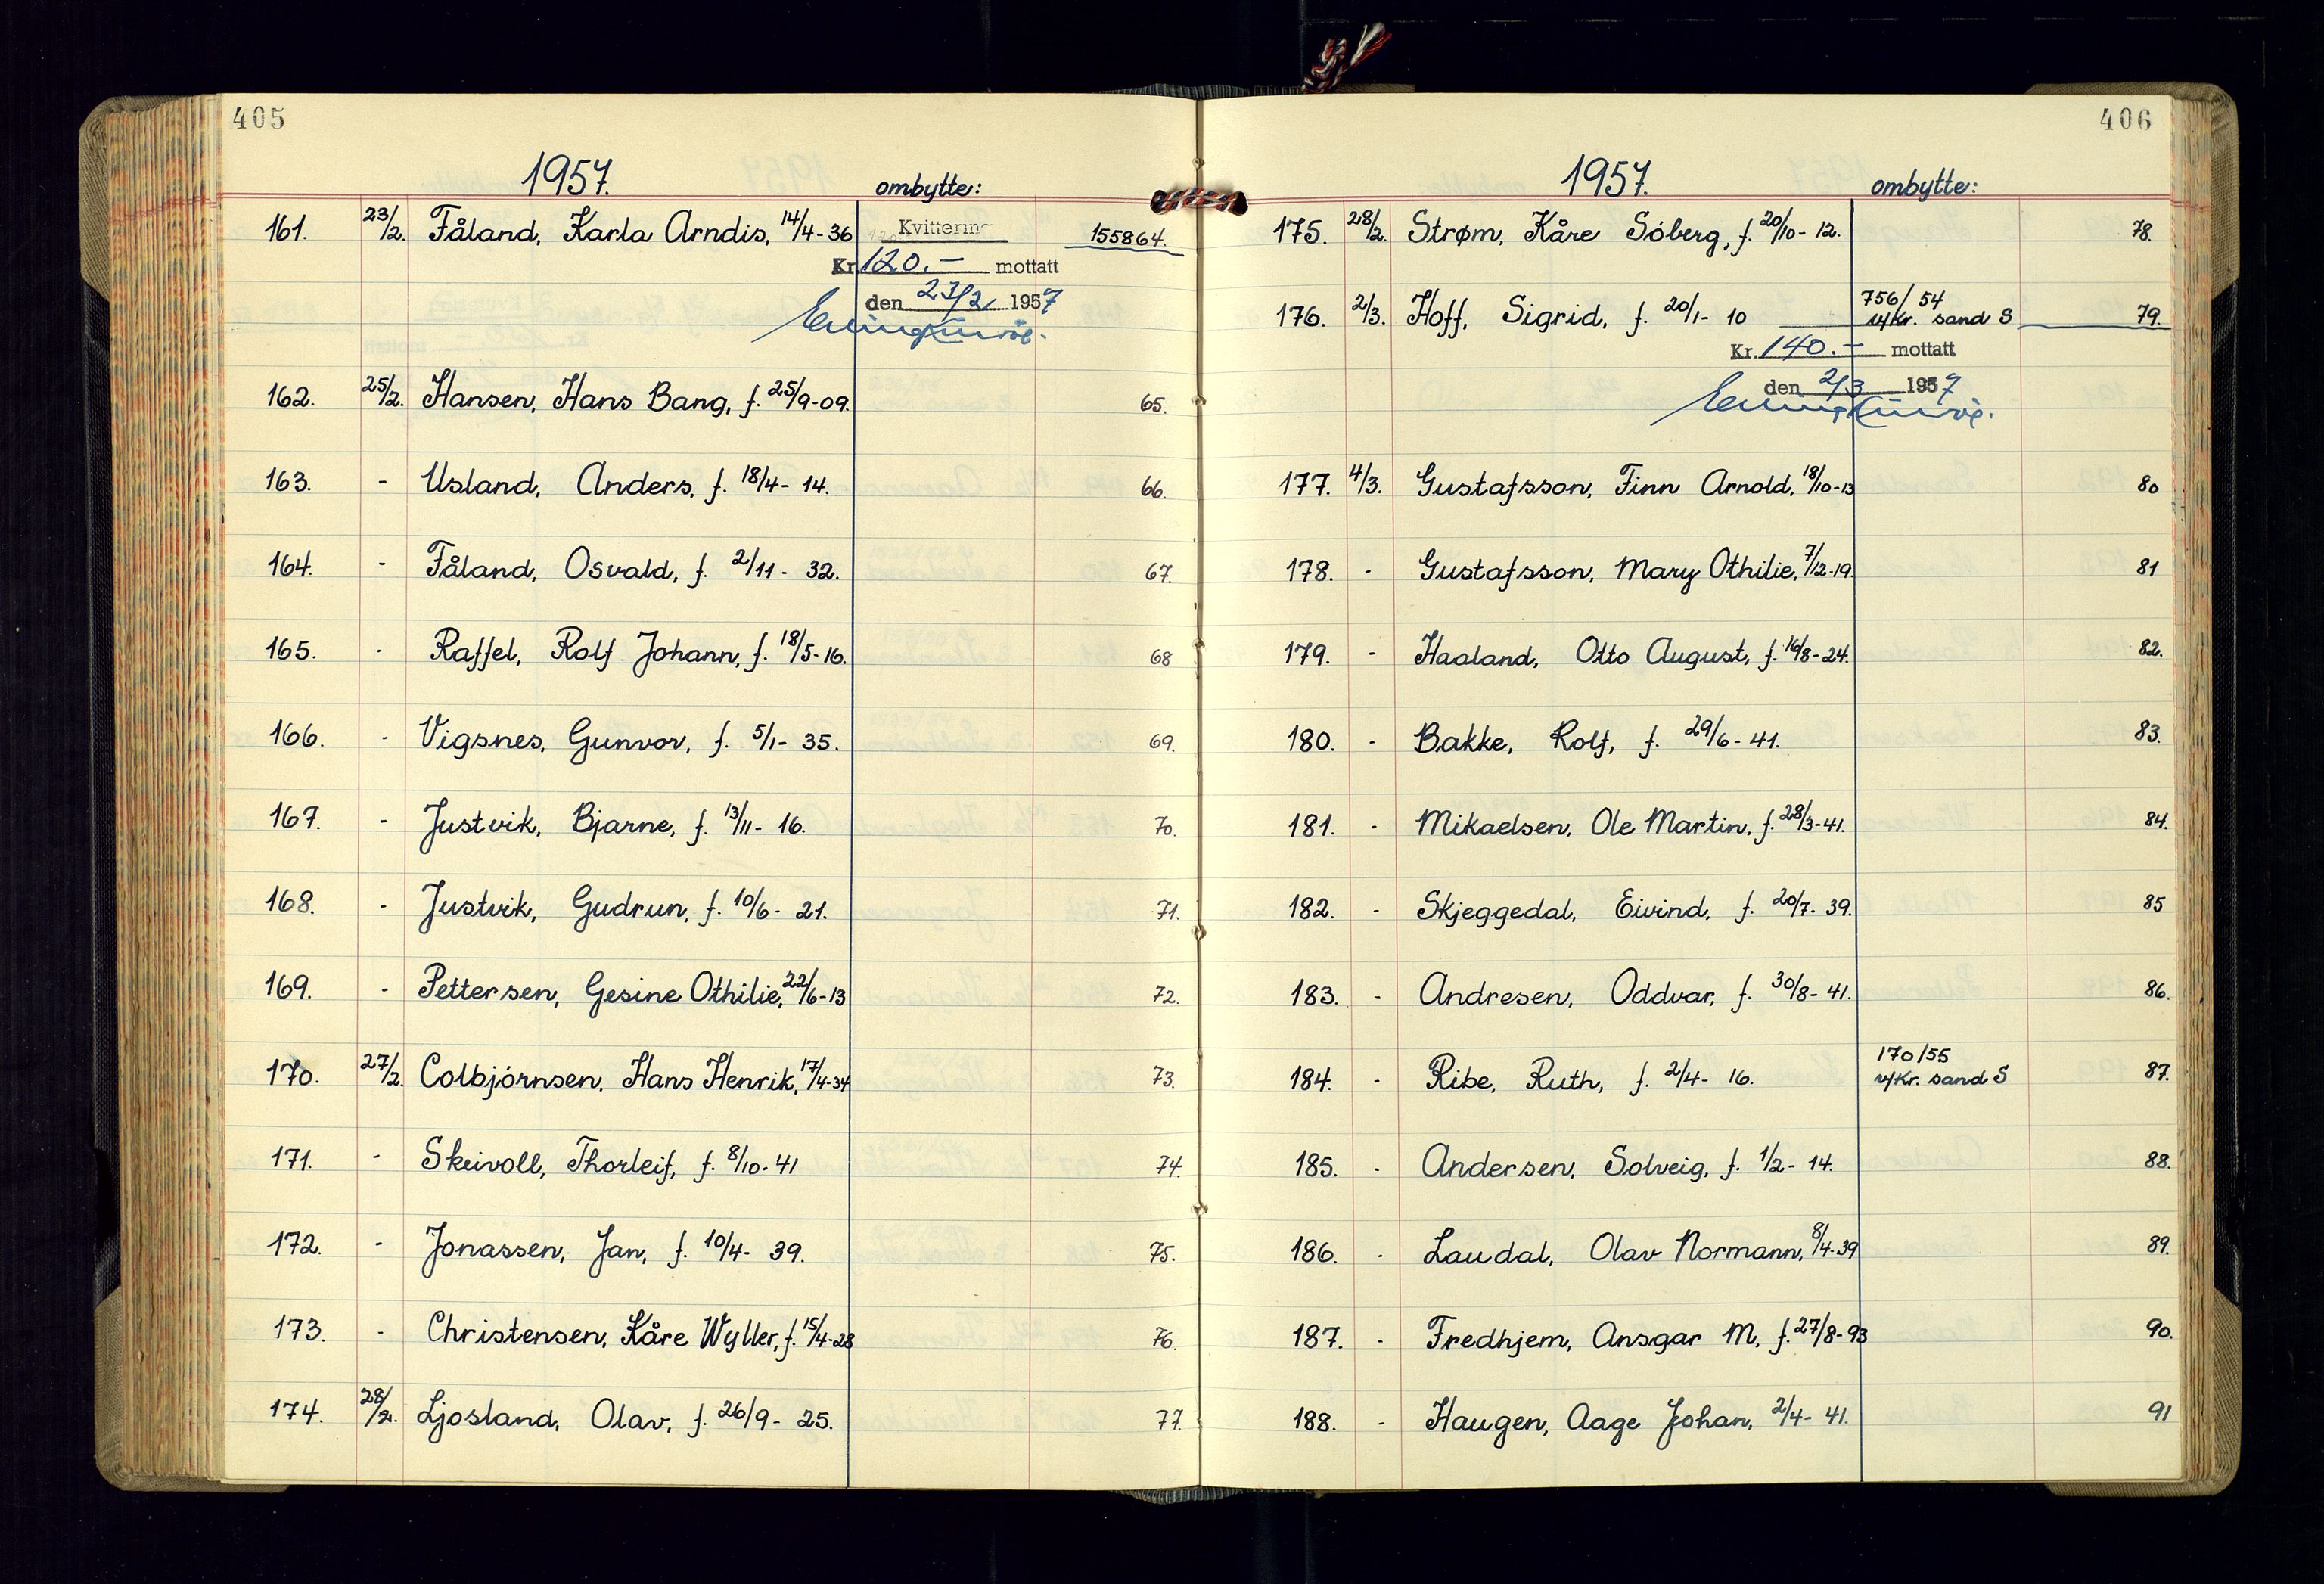 405
1957. ombytte:
161. 23/2. Fåland, Karla Arndis, 14/4-36 Kvittering 155864.
Kr. 120.- mottatt
den 23/2 1957
162. 25/2. Hansen, Hans Bang, f. 25/9-09. 65.
163. - Usland, Anders, f. 18/4- 14. 66.
164. - Fåland, Osvald, f. 2/11- 32. 67.
165. - Raffel, Rolf Johann, f. 18/5-16. 68
166. - Vigsnes, Gunvor, f. 5/1- 35. 69.
167. - Justvik, Bjarne, f. 13/11- 16. 70.
168. - Justvik, Gudrun, f. 10/6- 21. 71.
169. - Pettersen, Gesine Othilie, 22/6-13 72.
170. 27/2. Colbjörnsen, Hans Henrik, 17/4-34 73.
171. - Skeivoll, Thorleif, f. 8/10-41 74.
172. - Jonassen, Jan, f. 10/4- 39. 75.
173. - Christensen, Kåre Wyller, f. 15/4-28 76.
174. 28/2. Ljosland, Olav, f. 26/9- 25. 77.
406
1957. ombytte:
175. 28/2. Strøm, Kåre Söberg, f. 20/10- 12. 78.
176. 2/3. Hoff, Sigrid, f. 20/1- 10 756/54 79.
v/Kr. sand S
Kr. 140.- mottatt
den 2/3 1957
177. 4/3. Gustafsson, Finn Arnold, 18/10-13 80
178. - Gustafsson, Mary Othilie, 7/12-19. 81
179. - Haaland, Otto August, f. 16/8-24. 82.
180. - Bakke, Rolf, f. 29/6-41. 83.
181. - Mikaelsen, Ole Martin, f. 28/3-41. 84.
182. - Skjeggedal, Eivind, f. 20/7-39. 85
183. - Andresen, Oddvar, f. 30/8-41. 86.
184. - Ribe, Ruth, f. 2/4- 16. 170/55 87.
v/Kr. sand S
185. - Andersen, Solveig, f. 1/2- 14. 88.
186. - Laudal, Olav Normann, 8/4-39 89.
187. - Fredhjem, Ansgar M, f. 27/8-93 90.
188. - Haugen, Aage Johan, 2/4- 41. 91